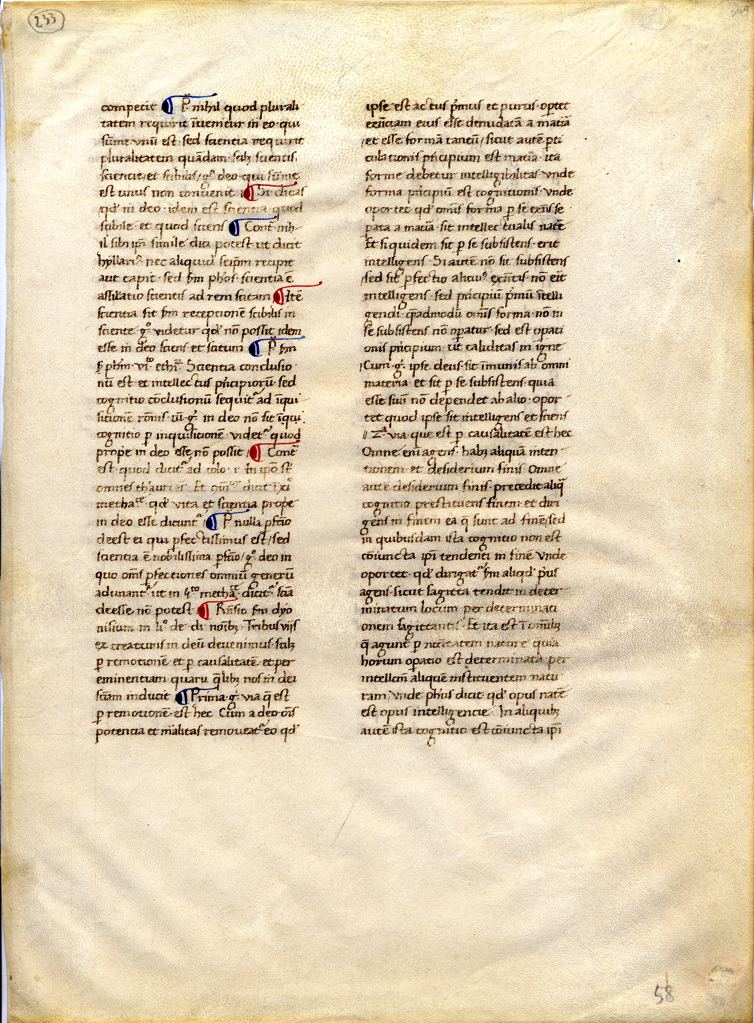 233
competit ¶ P͛. nihil quod plurali
tatem requirit īuenitur in eo qui
sūme vnū est. sed scientia requirit
pluralitatem quādam. scilꝫ scientis.
scientie. et scibilis / gͦ. deo qui sūme
est unus non conuenit. ¶ Si dicas
qd' in deo idem est scientia quod
scibile. et quod sciens ¶ Cont͛. nih
il sibi ip̄i simile dici potest. ut dicit
hyllari͛. nec aliquid seip̄m recipit
aut capit. sed sm̄ phos̄ scientia ē
assilatio scientis ad rem scitam ¶ Itē
scientia fit sm̄ receptionē scibilis in
sciente. gͦ. videtur qd' nō possit idem
esse in deo sciens et scitum ¶ P͛. sm̄
phm̄. viͦ. ethiͨ. Scientia conclusio
nū est. et intellectus pͥncipiorū. sed
cognitio cōclusionū sequit͛ ad īqui
sitionē rōnis. gͦ. in deo nō fit īqui.
cognitio ꝑ inquisitionē. videt͛. quod
prop͛e in deo esse nō possit ¶ Cont͛
est quod dicit͛ ad colo. i. In ip̄o st̄
omnes thauri
metha͛. qd' vita et scientia prop͛e
in deo esse dicunt͛ ¶ P͛. nulla ꝑfcāo
deest ei qui ꝑfectissimus est / sed
scientia ē nobilissima ꝑfcāo / gͦ. deo in
quo om̄s ꝑfectiones omniū generū
adunant͛. ut in metha͛. dicit͛. scīa
deesse nō potest. ¶ Rn̄sio sm̄ dyo
nisium in liͦ. de di. noībꝫ. Tribus viis
ex creaturis in deū deuenimus. scilꝫ
ꝑ remotionē. et ꝑ causalitatē. et per
eminentiam. quarū q̄libꝫ nos in dei
scīam inducit ¶ Prima gͦ. via q̄ est
ꝑ remotionē. est hec. Cum a deo oīs
potencia et māli͛tas remoueat͛. eo qd'
ipse est actus pͥmus et purus. oportet
essentiam eius esse denudatā a matīā
et esse formā tantū / sicut autē pti
culationis pͥncipium est matīa. ita
forme debetur intelligibilitas. vnde
forma pͥncipiū est cognitionis. vnde
oportet qd' omīs forma ꝑ se exn̄s se
pata a matīā. sit intellectualis natē
Et siquidem sit ꝑ se subsistens. erit
intelligens. Si autē nō sit subsistens
sed sit ꝑfectio alicuiꝰ exn̄tis. nō eīt
intelligens. sed pͥncipiū pͥmū ītelli
gendi. quēadmodū omīs forma nō in
se subsistens nō opatur. sed est opati
onis pͥncipium. ut caliditas in igne
Cum gͦ. ipse deus sit imunis ab omni
materia. et sit ꝑ se subsistens. quia
esse suū nō dependet ab alio. opor
tet quod ipse sit intelligens et sciens
// 2ª via. que est ꝑ causalitatē est hec
Omne eni͛ agens. habꝫ aliquā inten
tionem et desiderium finis. Omne
autē desiderium finis. precedit aliq̄
cognitio prestituens finem et diri
gens in finem ea q̄ sunt ad finē / sed
in quibusdam ista cognitio non est
cōiuncta ip̄i tendenti in finē. vnde
oportet qd' dirigat͛ sm̄ aliqd' pͥus
agens. sicut sagitta tendit in deter
minatum locum per determinati
onem sagittantis. Et ita est ī omībꝫ
q̄ agunt ꝑ nc̄citatem nature. quia
horum opatio est determinata per
intellcm̄ aliquē instituentem natu
ram. vnde phūs dicit qd' opus natē
est opus intelligencie. In aliquibꝫ
autē ista cognitio est cōiuncta ip̄i
58